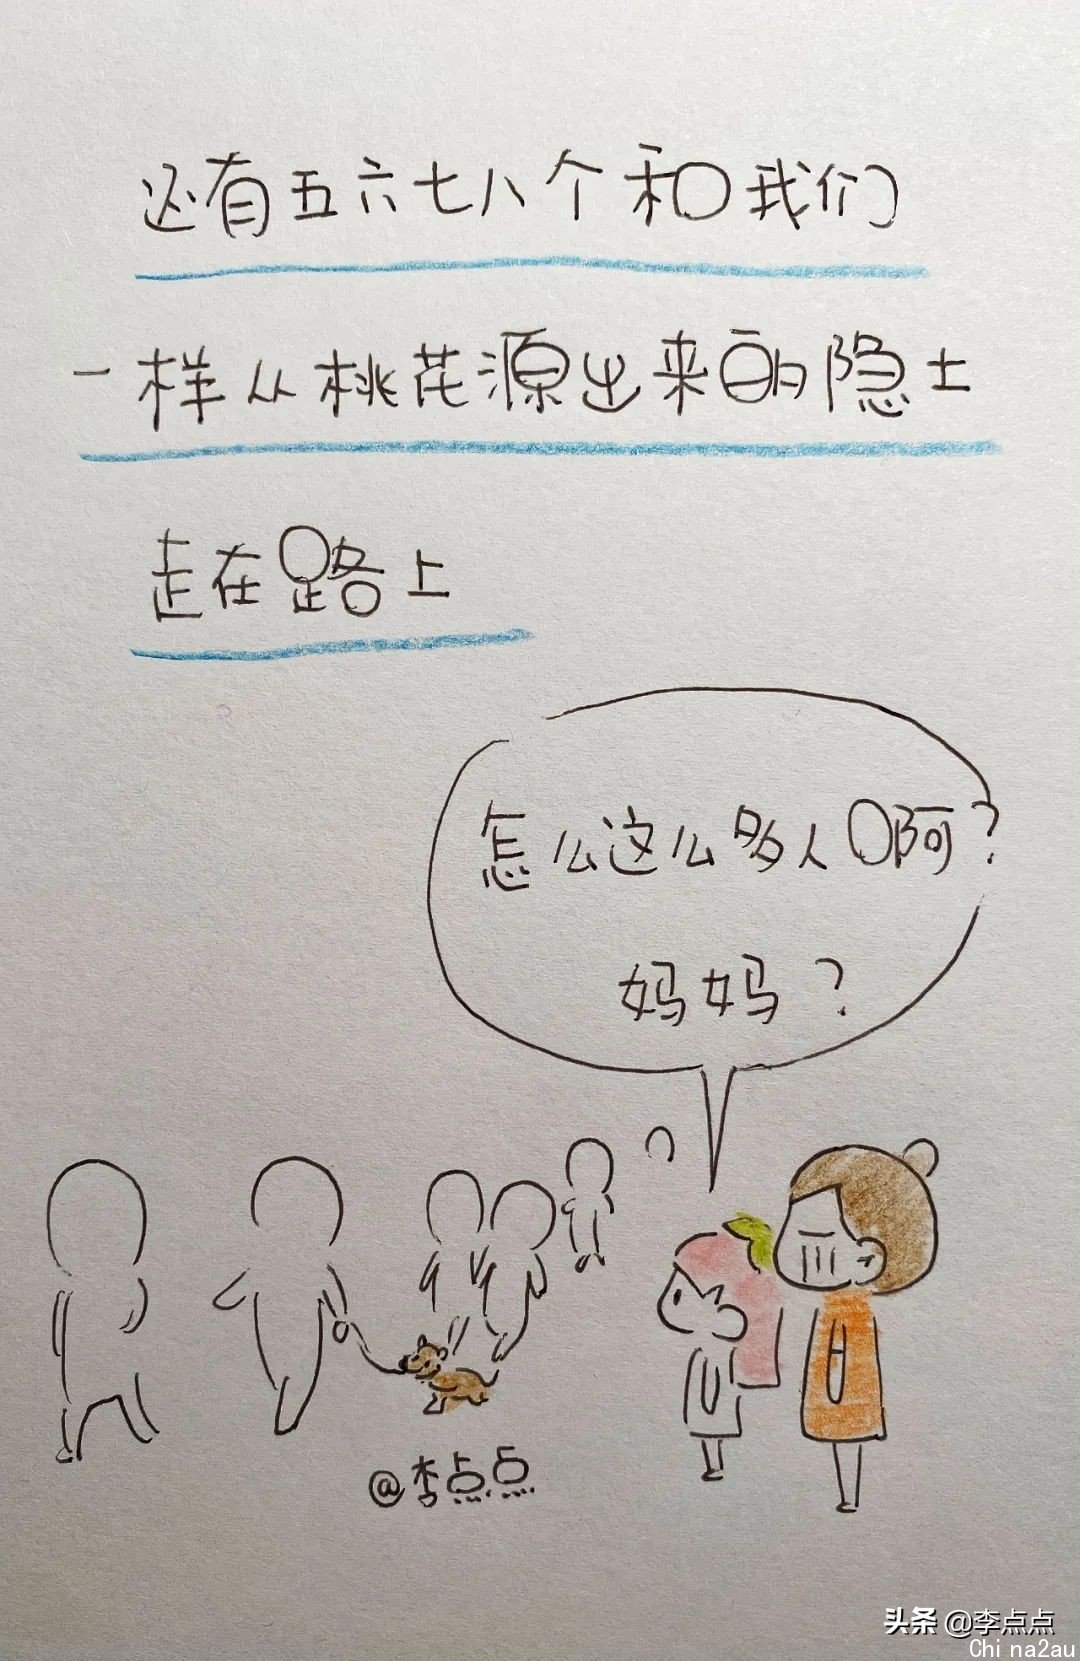 还有五六七八个和我们
一样从桃花源出来的隐士
走在路上
怎么这么多人啊？
妈妈？
@李点点
头条 @李点点
Chi na2au